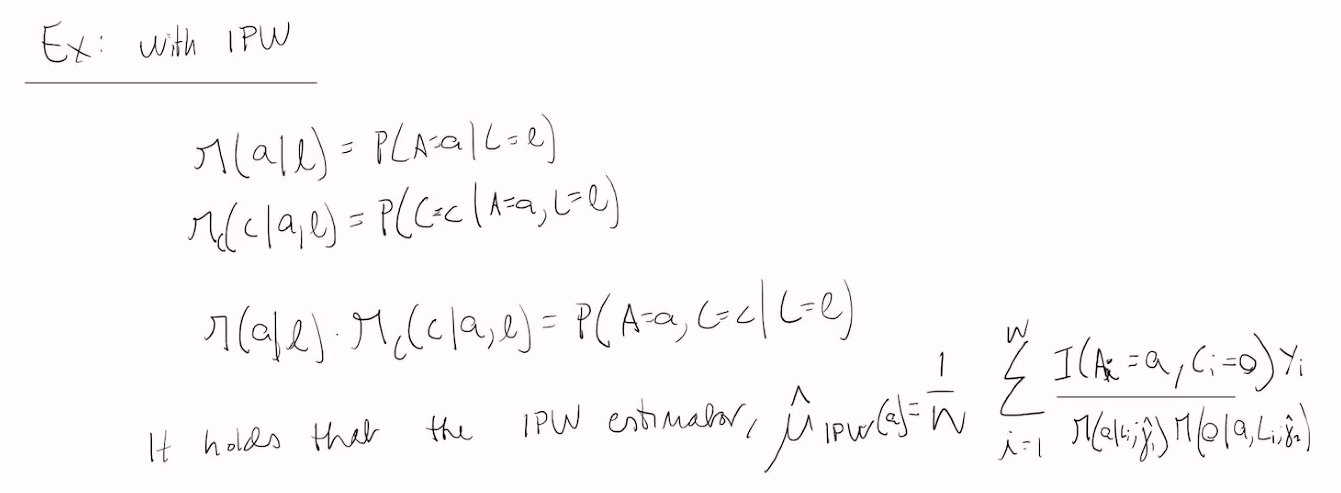 Ex: with IPW
π(a|l) = P(A=a|L=l)
π_c(c|a,l) = P(C=c|A=a,L=l)
π(a|l)·π_c(c|a,l) = P(A=a, C=c|L=l)
It holds that the IPW estimator, μ̂_IPW(a) = 1/n ∑_{i=1}^{n} I(A_i=a, C_i=0)Y_i / π(a|L_i;γ̂_1)π(0|a,L_i;γ̂_2)